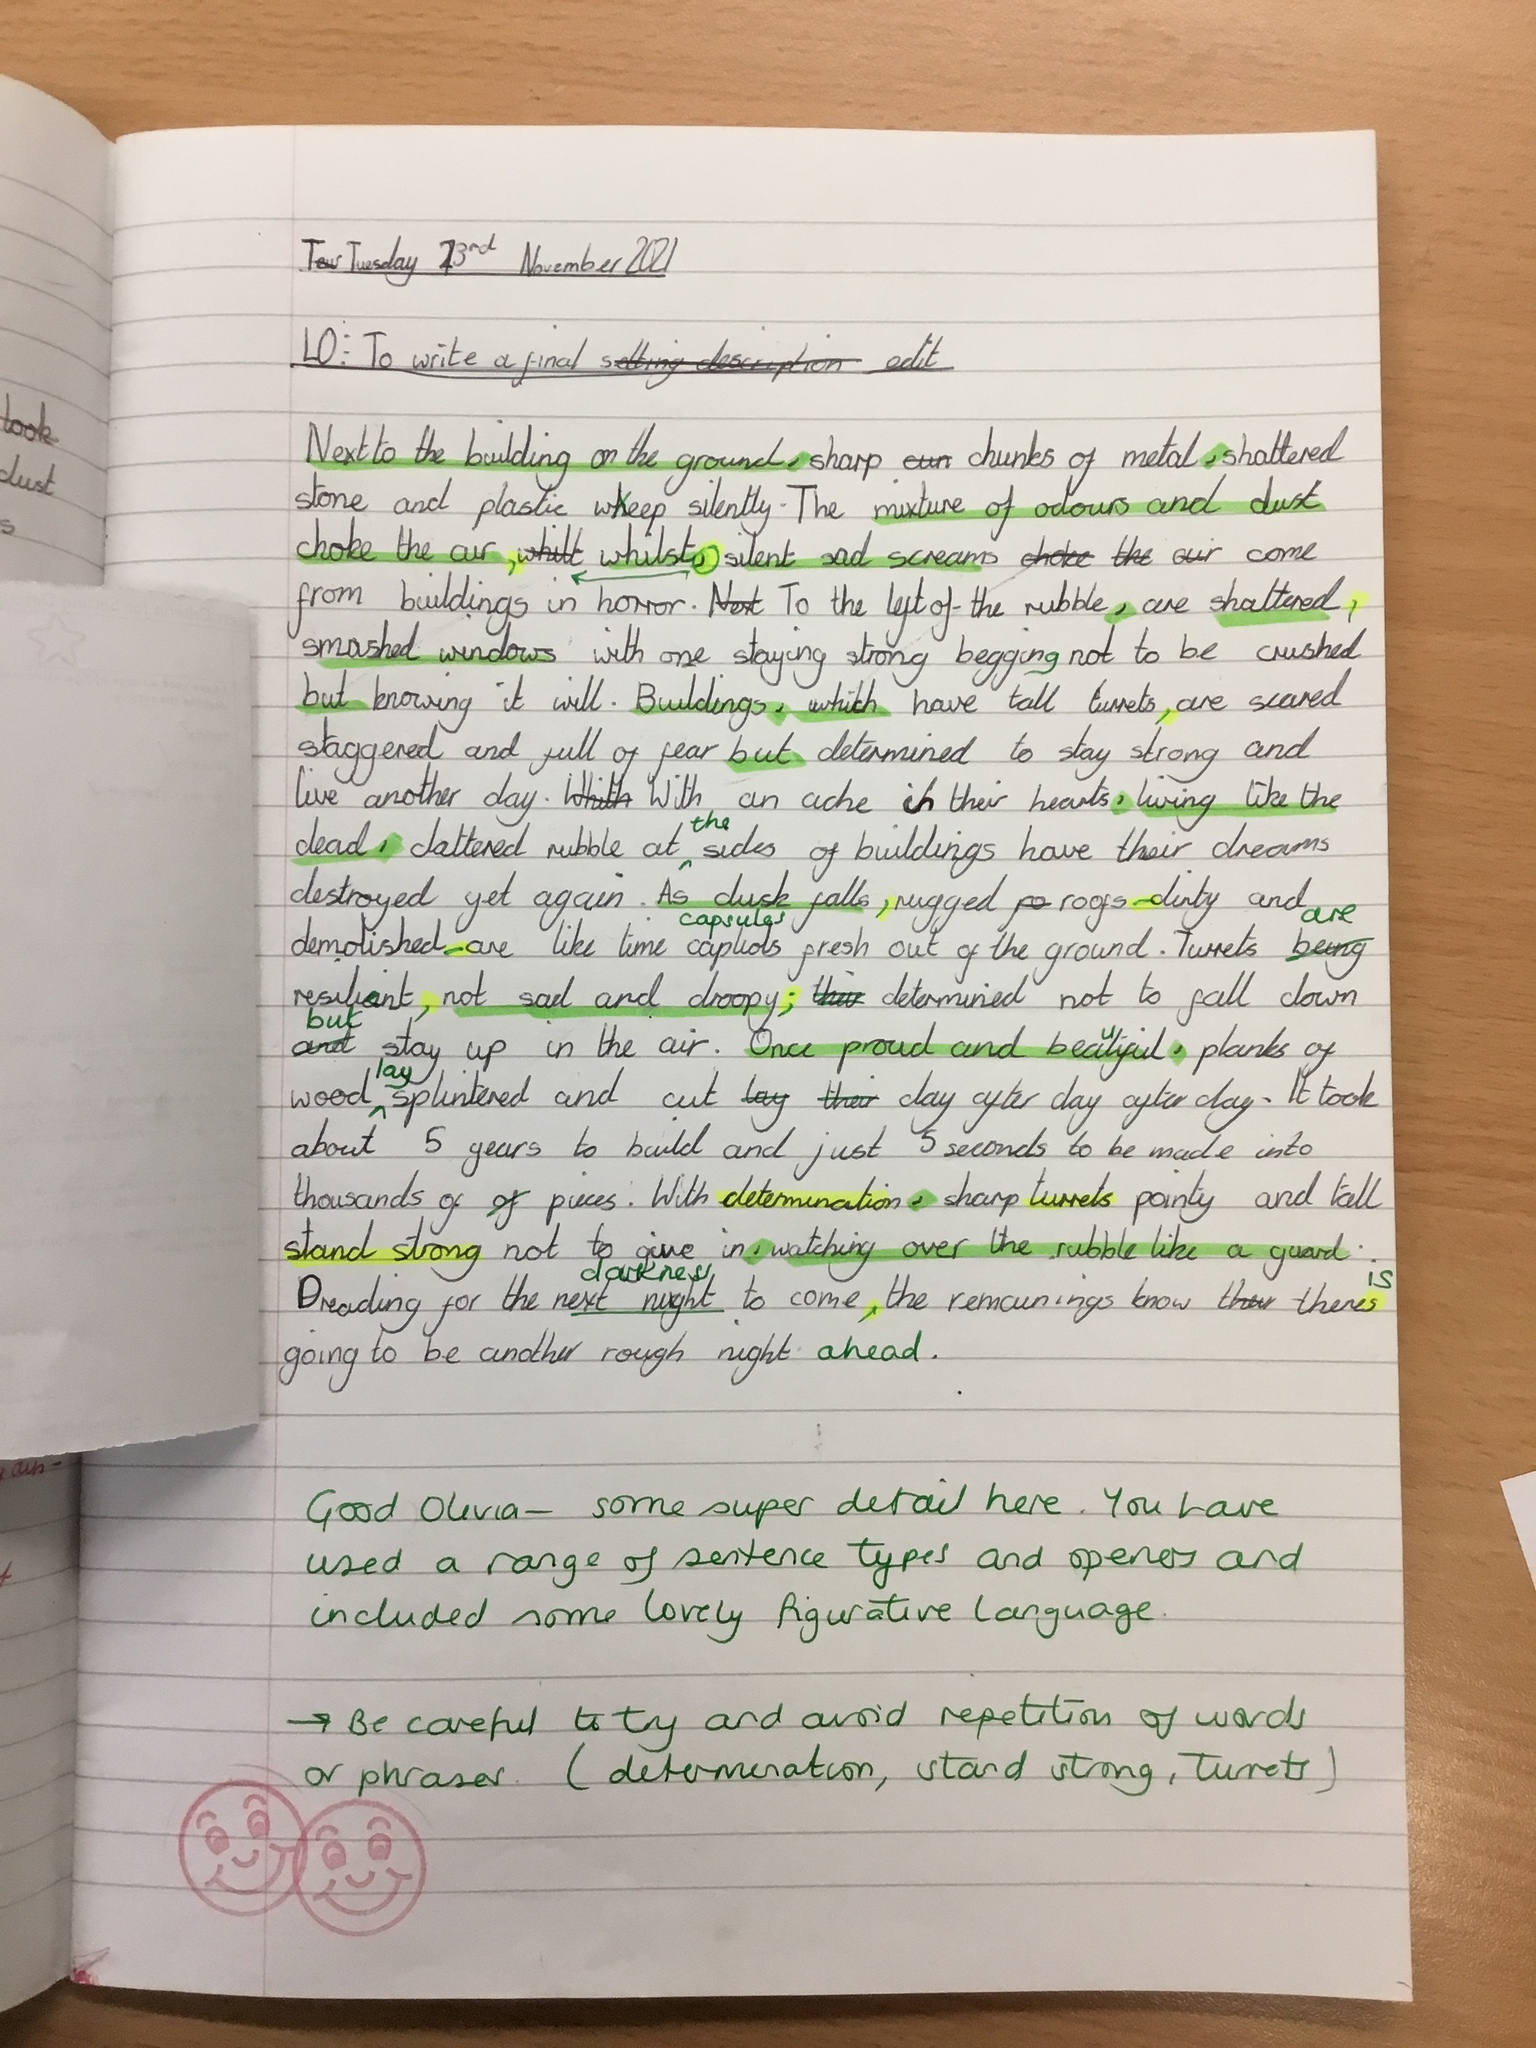 took
dust
s
Tew Tuesday 23rd November 2021
LO: To write a final setting description edit
Next to the building on the ground, sharp cun chunks of metal, shattered
stone and plastic wheep silently. The mixture of odours and dust
choke the air, whilt whilst, silent sad screams choke the air come
from buildings in horror. Next To the left of the rubble, are shattered,
smashed windows with one staying strong begging not to be crushed
but knowing it will. Buildings, which have tall turrets, are scared
staggered and full of fear but determined to stay strong and
live another day. Whith With an ache in their hearts, living like the
dead, clattered rubble at the sides of buildings have their dreams
destroyed yet again. As dusk falls, rugged ro roofs - dirty and
demolished - are like time capliols capsules fresh out of the ground. Turrets being are
resilient, not sad and droopy; their determined not to fall down
and but stay up in the air. Once proud and beautiful, planks of
wood lay splintered and cut lay their day after day after day. It took
about 5 years to build and just 5 seconds to be made into
thousands of of pieces. With determination, sharp turrets pointy and tall
stand strong not to give in, watching over the rubble like a guard.
Dreading for the next night darkness to come, the remainings know their theres is
going to be another rough night ahead.
Good Olivia - some super detail here. You have
used a range of sentence types and openers and
included some lovely figurative language.
→ Be careful to try and avoid repetition of words
or phrases. (determination, stand strong, turrets)